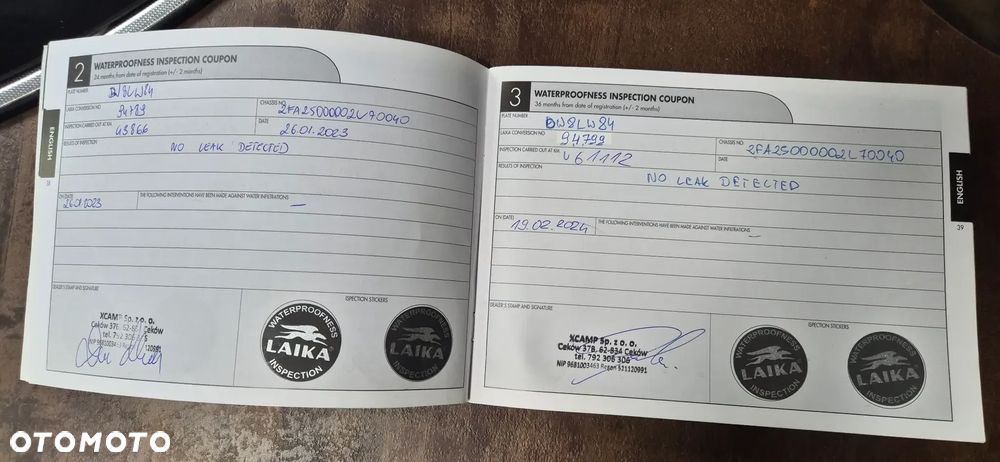 2
WATERPROOFNESS INSPECTION COUPON
24 months from date of registration (+/- 2 months)
PLATE NUMBER DW8LW84
LAIKA CONVERSION NO 94799
CHASSIS NO ZFA25000002L70040
INSPECTION CARRIED OUT AT KM. 43866
DATE 26.01.2023
RESULTS OF INSPECTION NO LEAK DETECTED
ENGLISH
38
ON (DATE) 26.01.2023
THE FOLLOWING INTERVENTIONS HAVE BEEN MADE AGAINST WATER INFILTRATIONS —
DEALER'S STAMP AND SIGNATURE
ISPECTION STICKERS
XCAMP Sp. z o. o.
Ceków 37B, Ceków
tel. 792 306
NIP 9681003463 Regon
WATERPROOFNESS
LAIKA
INSPECTION
WATERPROOFNESS
LAIKA
INSPECTION
3
WATERPROOFNESS INSPECTION COUPON
36 months from date of registration (+/- 2 months)
PLATE NUMBER DW8LW84
LAIKA CONVERSION NO 94799
CHASSIS NO ZFA25000002L70040
INSPECTION CARRIED OUT AT KM. 61112
DATE
RESULTS OF INSPECTION
NO LEAK DETECTED
ENGLISH
39
ON (DATE) 19.02.2024
THE FOLLOWING INTERVENTIONS HAVE BEEN MADE AGAINST WATER INFILTRATIONS —
DEALER'S STAMP AND SIGNATURE
ISPECTION STICKERS
XCAMP Sp. z o. o.
Ceków 37B, 62-834 Ceków
tel. 792 306 306
NIP 9681003463 Regon 521120991
WATERPROOFNESS
LAIKA
INSPECTION
WATERPROOFNESS
LAIKA
INSPECTION
OTOMOTO